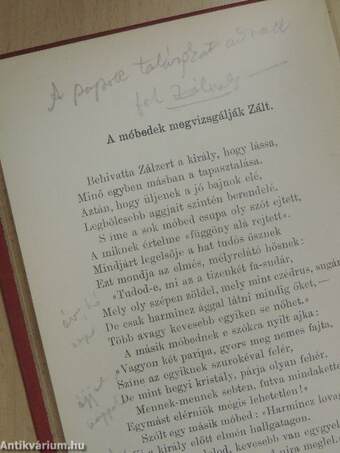 A papok talányokat adnak
fel Zálnak —
A móbedek megvizsgálják Zált.
Behivatta Zálzert a király, hogy lássa,
Minő egyben másban a tapasztalása.
Aztán, hogy üljenek a jó bajnok elé,
Legbölcsebb aggjait szintén berendelé.
S ime a sok móbed csupa oly szót ejtett,
A miknek értelme »függöny alá rejtett«.
Mindjárt legelsője a hat tudós ősznek
Ezt mondja az elmés, mélyrelátó hősnek:
»Tudod-e, mi az a tizenkét fa-sudár,
Mely oly szépen zöldel, mely mint czédrus, sugár
De csak harmincz ággal látni mindig őket, —
Több avagy kevesebb egyiken se nőhet.«
A másik móbednek e szókra nyilt ajka:
»Vagyon két paripa, gyors meg nemes fajta,
Szine az egyiknek szurokéval felér,
De mint hegyi kristály, párja olyan fehér.
Mennek-mennek sebten, futva mindaketten
Egymást elérniök mégis lehetetlen!«
Szólt egy másik móbed: »Harmincz lovas
király előtt elmén hallgatagon.
dod, kevesebb van egygyel
antikvarium.hu
Antikvárium.hu